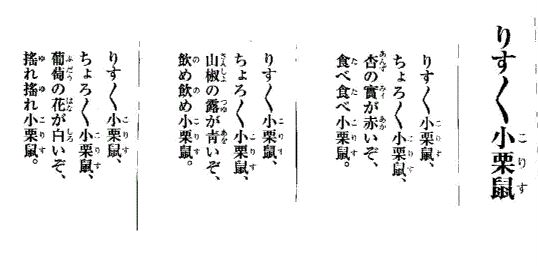 りす〳〵小栗鼠
りす〳〵小栗鼠、
ちょろ〳〵小栗鼠、
杏の實が赤いぞ、
食べ食べ小栗鼠。
りす〳〵小栗鼠、
ちょろ〳〵小栗鼠、
山椒の露が青いぞ、
飲め飲め小栗鼠。
りす〳〵小栗鼠、
ちょろ〳〵小栗鼠、
葡萄の花が白いぞ、
搖れ搖れ小栗鼠。